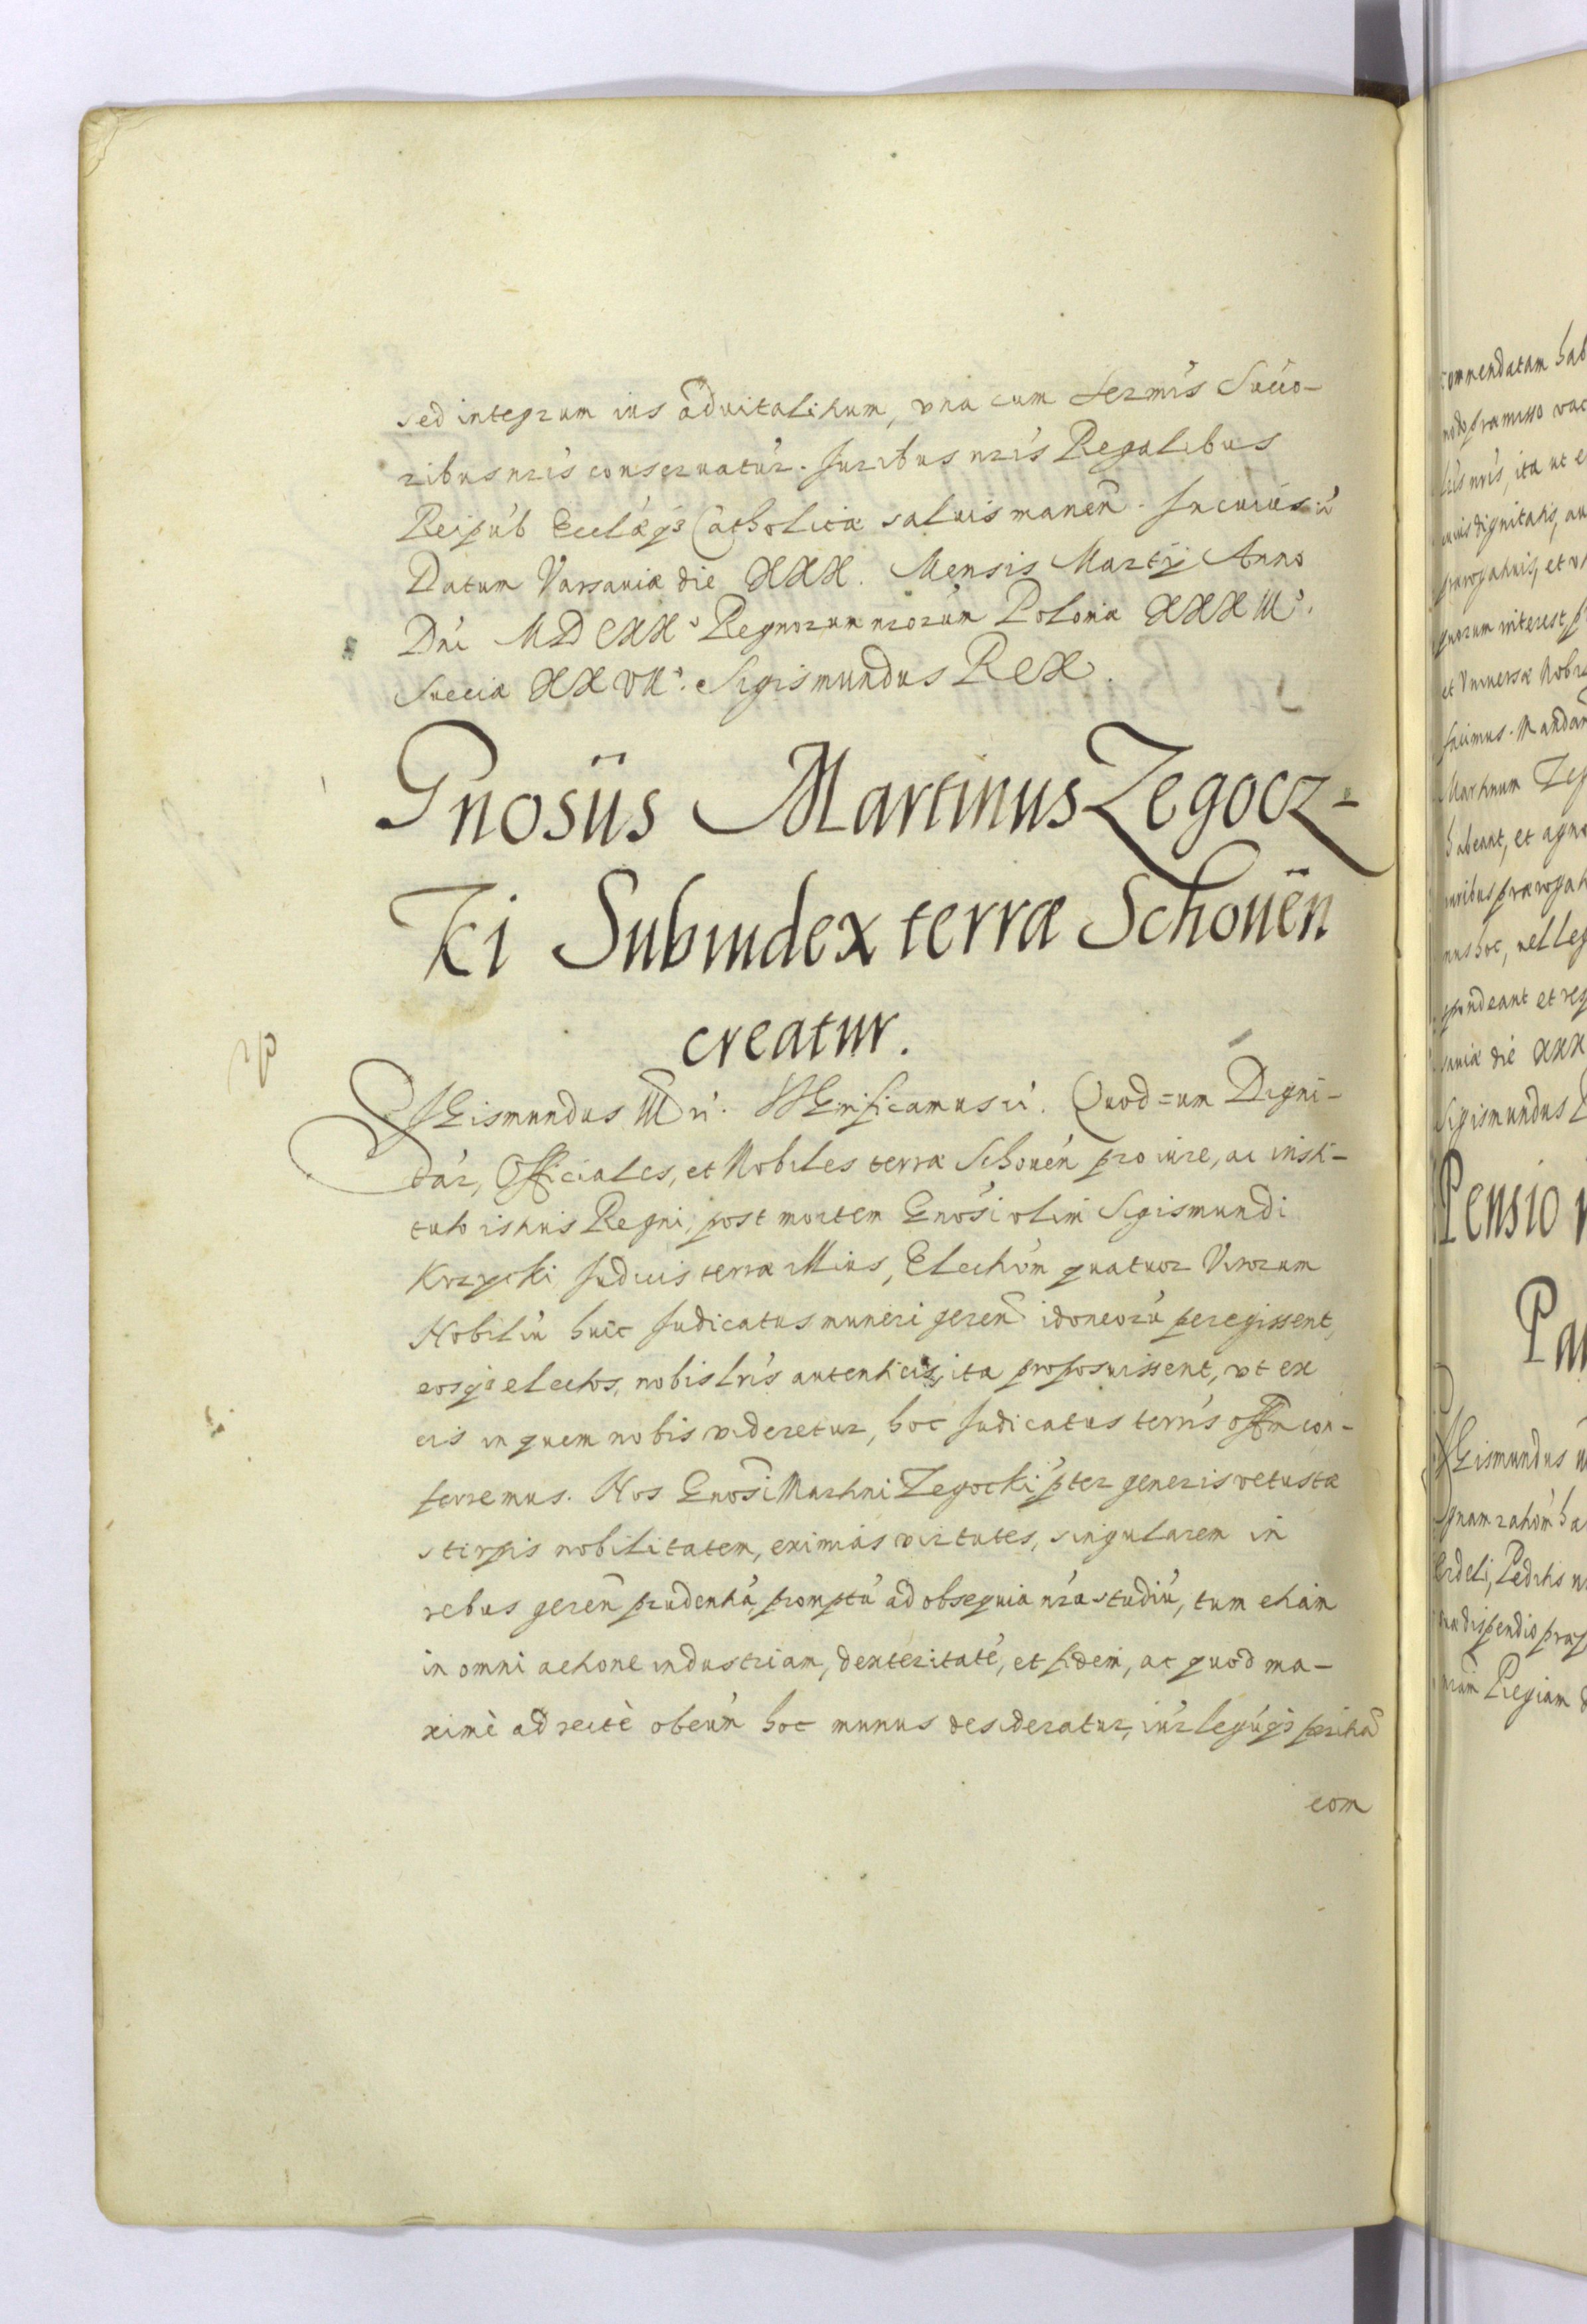 sed integrum ius aduitalitium, vna cum sermis Succo-
ribus nris conseruatur. Iuribus nris Regalibus
Reipub Ecclæq3 Catholicæ saluis manen. In cuius rei
Datum Varsauiæ die XXX. Mensis Martij Anno
Dni MDCXX° Regnorum nrorum Poloniæ XXXIII°.
Sueciæ XXVII°. Sigismundus Rex.
Gnosus Martinus Zegocz-
ki Subiudex terræ Schouen
creatur.
SIGismundus III ri. SIGnificamus ri. Quod cum Digni-
tar, Officiales, et Nobiles terræ Schouen pro iure, ac insti-
tuto istius Regni, post mortem Gnosi olim Sigismundi
Krzycki Iudicis terræ illius, Electiom quatuor Virorum
Nobiliu huic Iudicatus muneri geren idoneoru peregissent,
eosq3 electos, nobis lris autenticis, ita proposuissent, vt ex
eis in quem nobis videretur, hoc Iudicatus terris offm con-
ferremus. Nos Gnosi Martini Zegocki pter generis vetustæ
stirpis nobilitatem, eximias virtutes, singularem in
rebus geren prudentia, promptu ad obsequia nra studiu, tum etiam
in omni actione industriam, dexteritate, et fidem, ac quod ma-
xime ad recte obeun hoc munus desideratur, iur leguq3 peritia
com
commendatam hab
modo præmisso vac
lris nris, ita ut e
cuius dignitatis, au
prærogatiuis, et v
quorum interest p
et Vniuersæ Nobi
facimus. Mandam
Martinum Zeg
habeant, et agno
iuribus prærogat
nus hoc, vel leg
pondeant et resp
sauiæ die XXX
Sigismundus
Pensio
Pan
SIGismundus
gnam rationm ha
Erdeli, Peditis
næ dispendio præs
nram Regiam